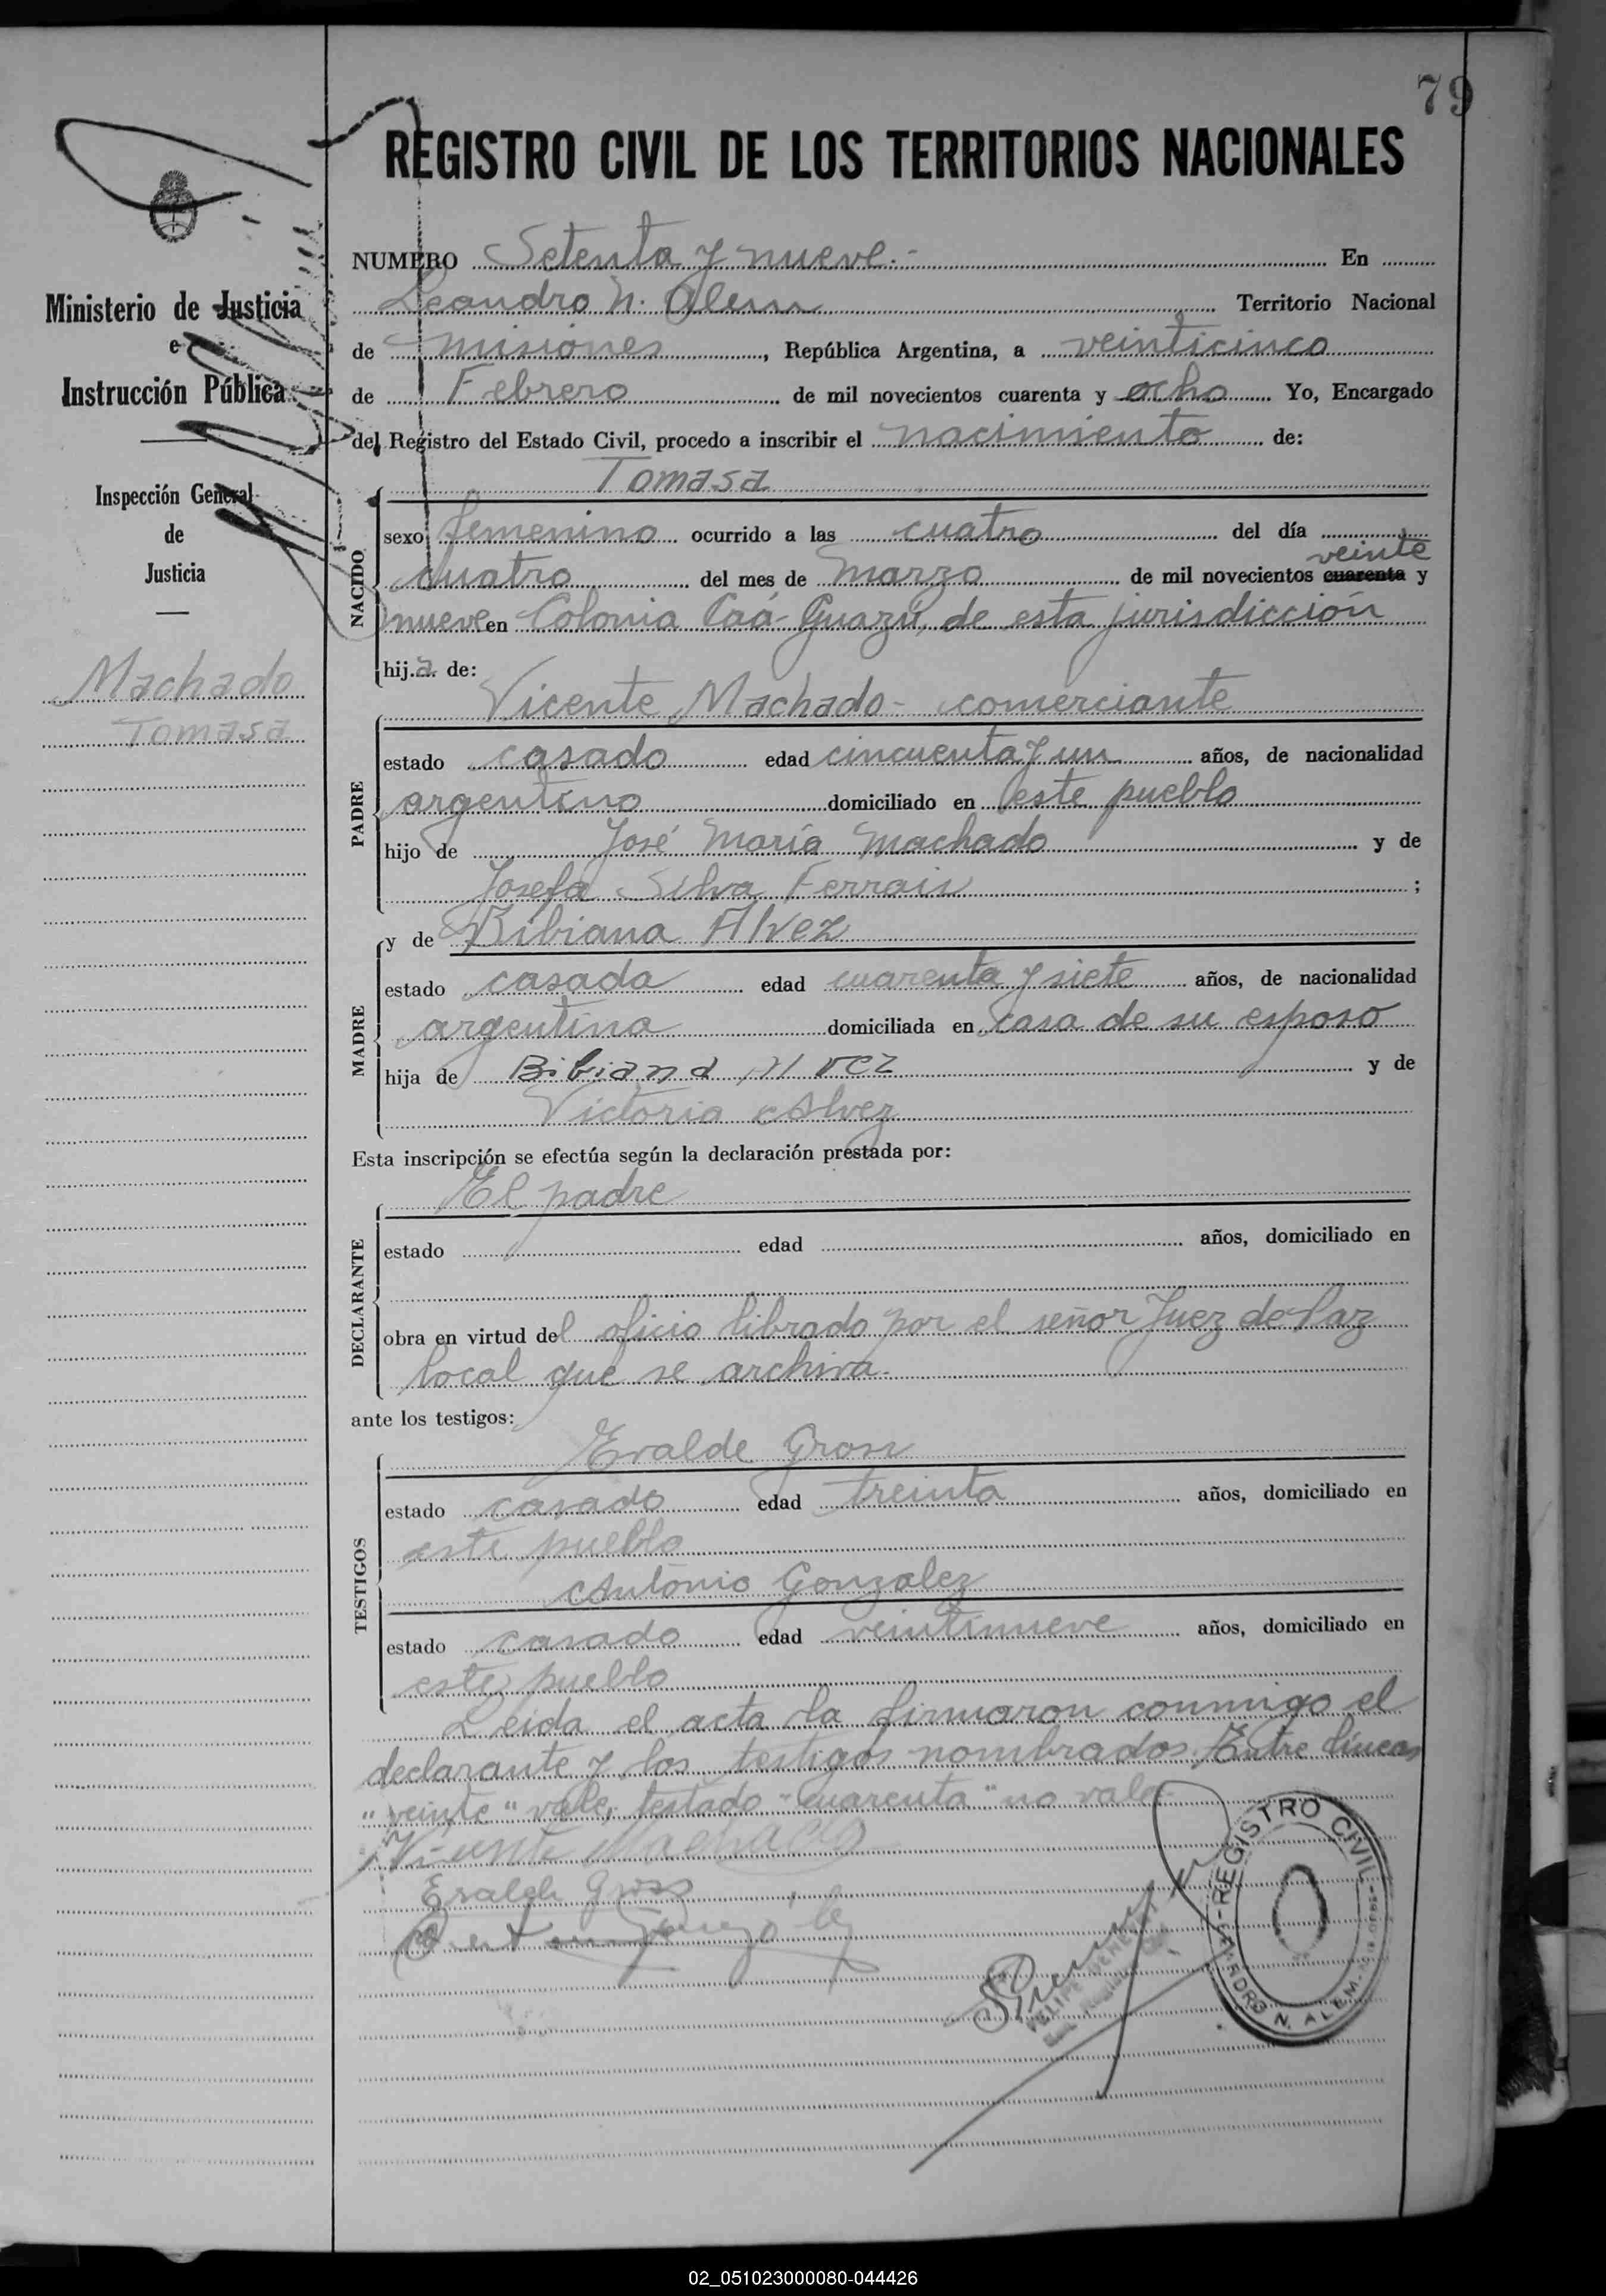 79
REGISTRO CIVIL DE LOS TERRITORIOS NACIONALES
Ministerio de Justicia
e
Instrucción Pública
Inspección General
de
Justicia
Machado
Tomasa
NUMERO Setenta y nueve.- En
Leandro N. Alem Territorio Nacional
de Misiones, República Argentina, a veinticinco
de Febrero de mil novecientos cuarenta y ocho Yo, Encargado
del Registro del Estado Civil, procedo a inscribir el nacimiento de:
Tomasa
NACIDO
sexo femenino ocurrido a las cuatro del día
veinte
cuatro del mes de Marzo de mil novecientos cuarenta y
nueve en Colonia Caá-Guazú, de esta jurisdicción
hij.a de:
Vicente Machado - comerciante
PADRE
estado casado edad cincuenta y un años, de nacionalidad
argentino domiciliado en este pueblo
hijo de José María Machado y de
Josefa Silva Ferrais ;
y de Bibiana Alvez
MADRE
estado casada edad cuarenta y siete años, de nacionalidad
argentina domiciliada en casa de su esposo
hija de Bibiana Alvez y de
Victoria Alvez
Esta inscripción se efectúa según la declaración prestada por:
El padre
DECLARANTE
estado edad años, domiciliado en
obra en virtud del oficio librado por el señor Juez de Paz
local que se archiva.
ante los testigos:
Evalde Gross
TESTIGOS
estado casado edad treinta años, domiciliado en
este pueblo
Antonio Gonzalez
estado casado edad veintinueve años, domiciliado en
este pueblo
Leida el acta la firmaron conmigo el
declarante y los testigos nombrados. Entre líneas
"veinte" vale, testado "cuarenta" no vale.
Vicente Machado
Evalde Gross
REGISTRO CIVIL
N. ALEM
02_051023000080-044426